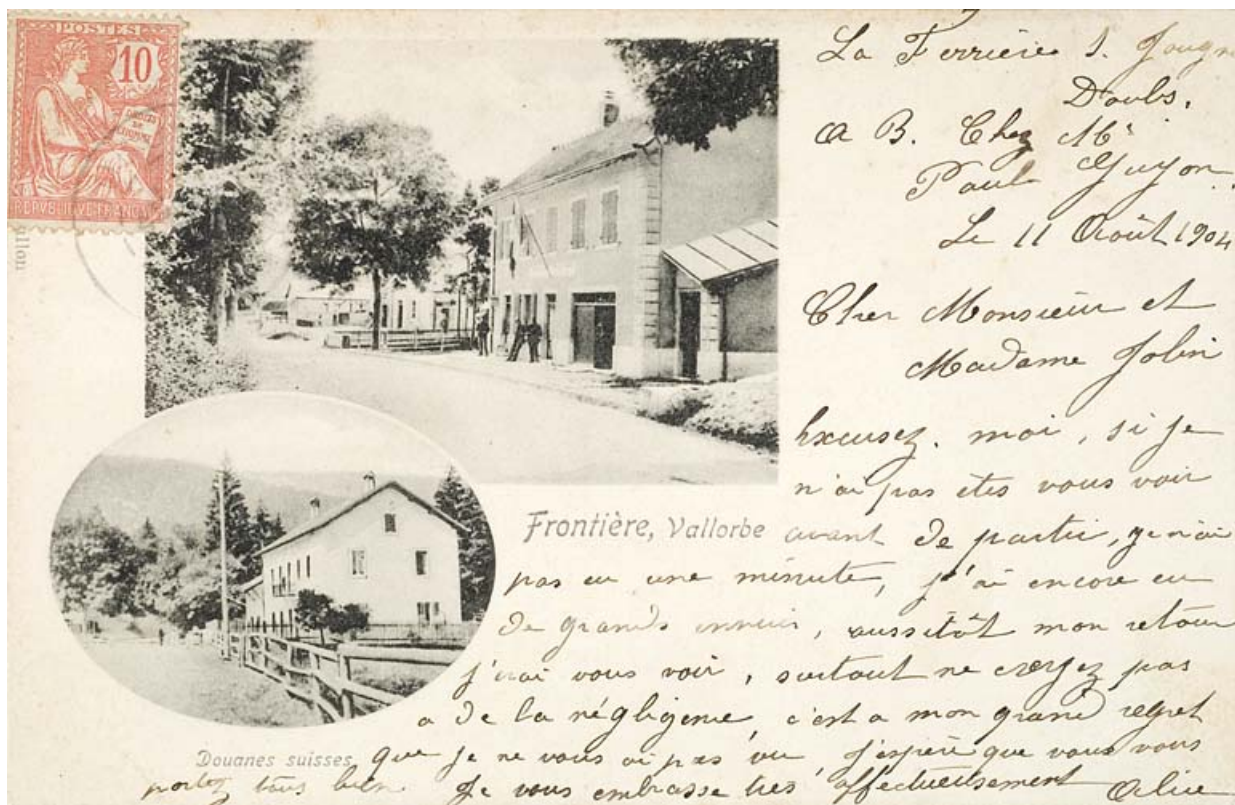 POSTES
10
DROITS
DE
L'HOMME
REPVBLIQVE FRANÇAISE
La Ferrière s. Jougne
Doubs.
a B. Chez Mr
Paul Guyon.
Le 11 Août 1904
Cher Monsieur et
Madame Jolin
Excusez. moi, si je
n'ai pas etes vous voir
Frontière, Vallorbe
avant de partir, je n'ai
pas eu une minute, j'ai encore eu
de grands ennuis, aussitôt mon retour
j'irai vous voir, surtout ne croyez pas
a de la négligence, c'est a mon grand regret
Douanes suisses
que je ne vous ai pas vu, j'espère que vous vous
portez tous bien. Je vous embrasse tres affectueusement Alice